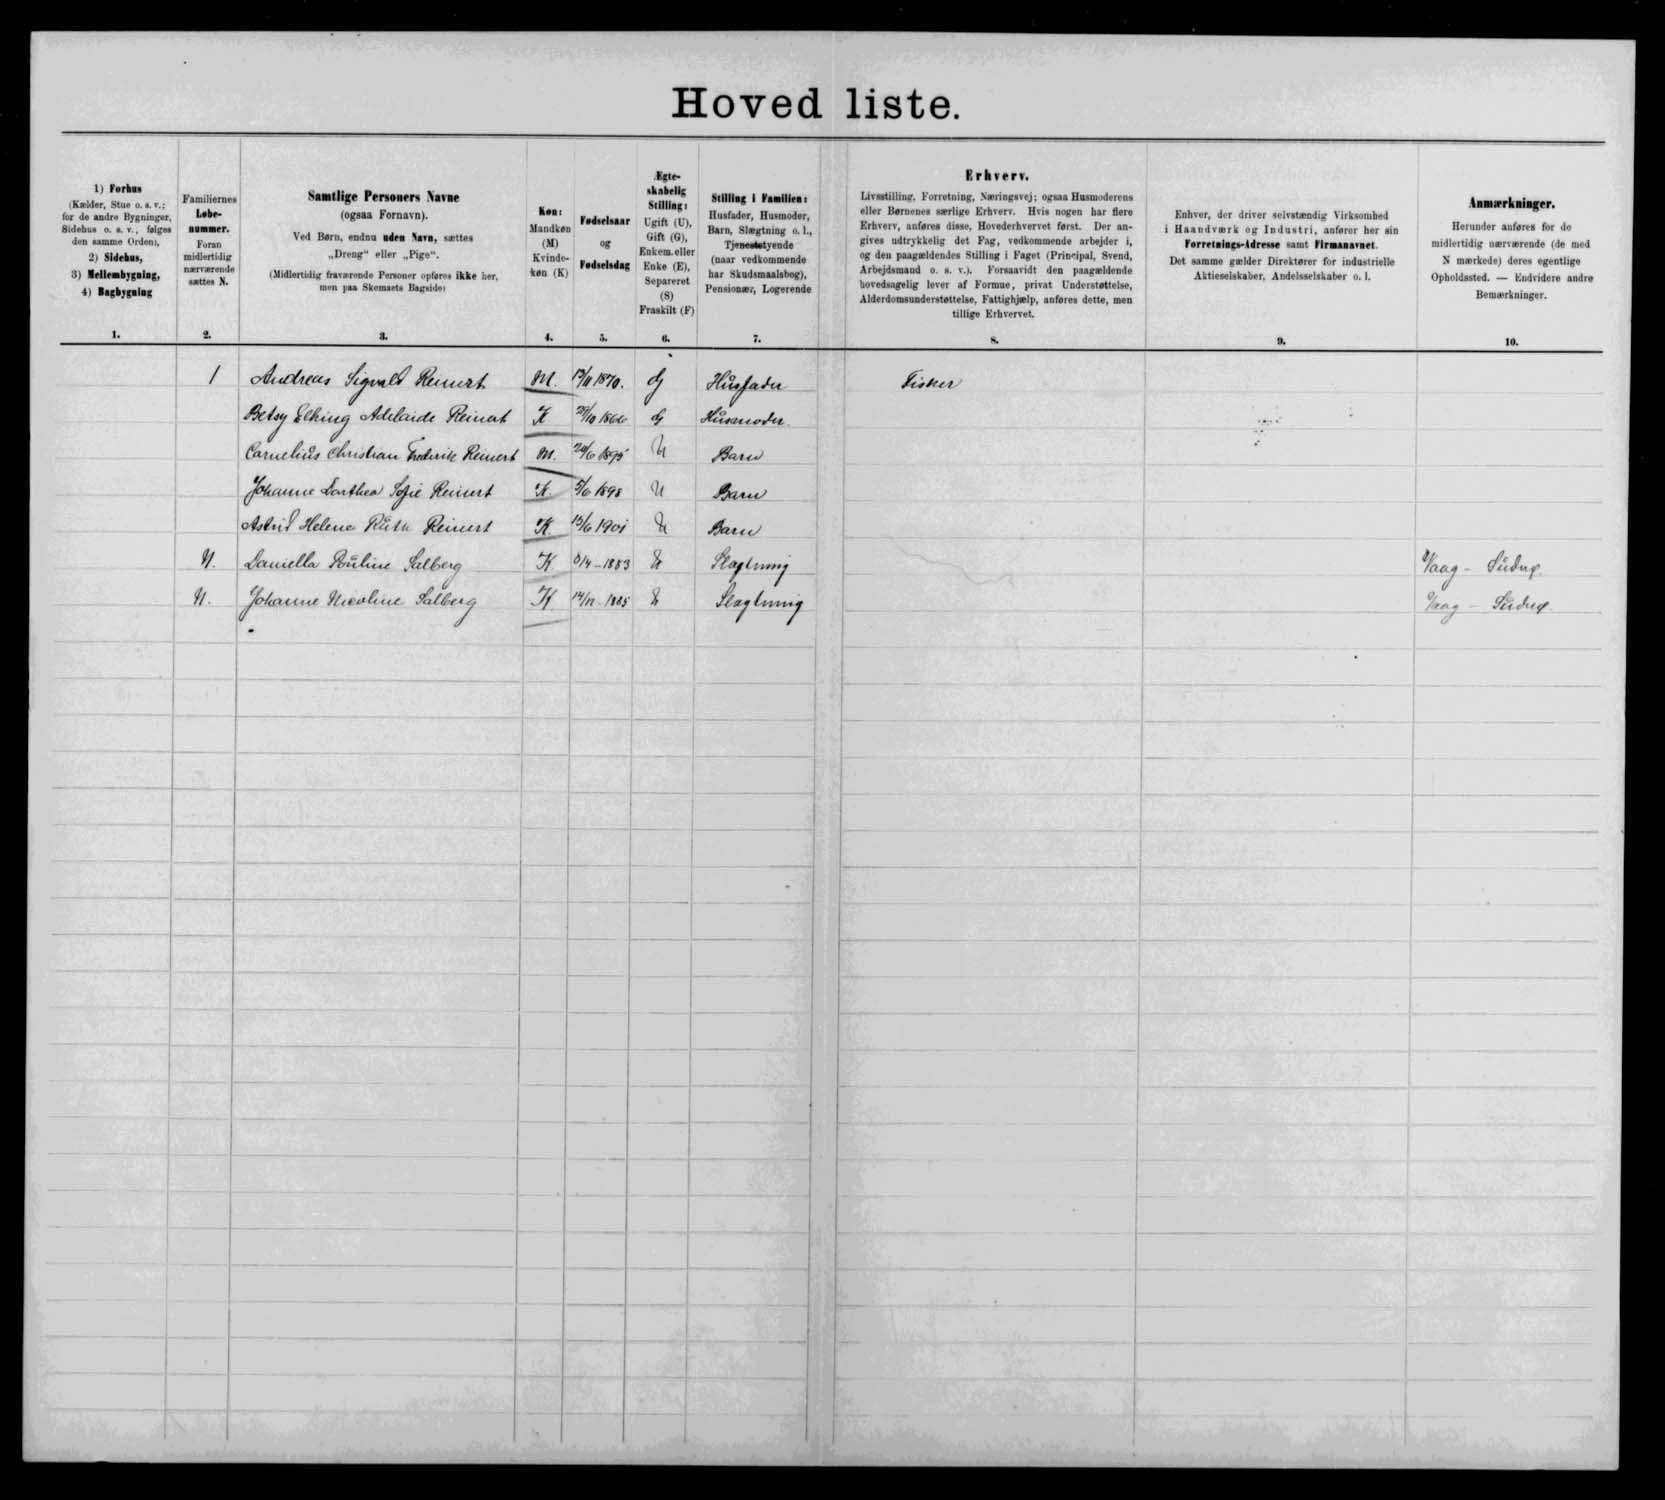 Hoved liste.
1) Forhus
(Kælder, Stue o. s. v.;
for de andre Bygninger,
Sidehus o. s. v., følges
den samme Orden),
2) Sidehus,
3) Mellembygning,
4) Bagbygning
1.
Familiernes
Løbe-
nummer.
Foran
midlertidig
nærværende
sættes N.
2.
Samtlige Personers Navne
(ogsaa Fornavn).
Ved Børn, endnu uden Navn, sættes
„Dreng“ eller „Pige“.
(Midlertidig fraværende Personer opføres ikke her,
men paa Skemaets Bagside)
3.
Køn:
Mandkøn
(M)
Kvinde-
køn (K)
4.
Fødselsaar
og
Fødselsdag
5.
Ægte-
skabelig
Stilling:
Ugift (U),
Gift (G),
Enkem. eller
Enke (E),
Separeret
(S)
Fraskilt (F)
6.
Stilling i Familien:
Husfader, Husmoder,
Barn, Slægtning o. l.,
Tjenestetyende
(naar vedkommende
har Skudsmaalsbog),
Pensionær, Logerende
7.
Erhverv.
Livsstilling, Forretning, Næringsvej; ogsaa Husmoderens
eller Børnenes særlige Erhverv. Hvis nogen har flere
Erhverv, anføres disse, Hovederhvervet først. Der an-
gives udtrykkelig det Fag, vedkommende arbejder i,
og den paagældendes Stilling i Faget (Principal, Svend,
Arbejdsmand o. s. v.). Forsaavidt den paagældende
hovedsagelig lever af Formue, privat Understøttelse,
Alderdomsunderstøttelse, Fattighjælp, anføres dette, men
tillige Erhvervet.
8.
Enhver, der driver selvstændig Virksomhed
i Haandværk og Industri, anfører her sin
Forretnings-Adresse samt Firmanavnet.
Det samme gælder Direktører for industrielle
Aktieselskaber, Andelsselskaber o. l.
9.
Anmærkninger.
Herunder anføres for de
midlertidig nærværende (de med
N mærkede) deres egentlige
Opholdssted. — Endvidere andre
Bemærkninger.
10.
1 Andreas Sigvald Reinert M. 13/11 1870. G Husfader Fisker
Betsy Adelaide Reinert K /10 1866 G Husmoder.
Cornelius Christian Frederik Reinert M. /6 1895 U Barn
Johanne Dorthea Sofie Reinert K. 5/6 1898 U Barn
Astrid Helene Ruth Reinert K. 13/6 1901 U Barn
N. Daniella Pauline Salberg K /4 - 1883 U Slægtning Vaag - Suderø.
N. Johanne Nicoline Salberg K 14/11 - 1885 U Slægtning Vaag - Suderø.